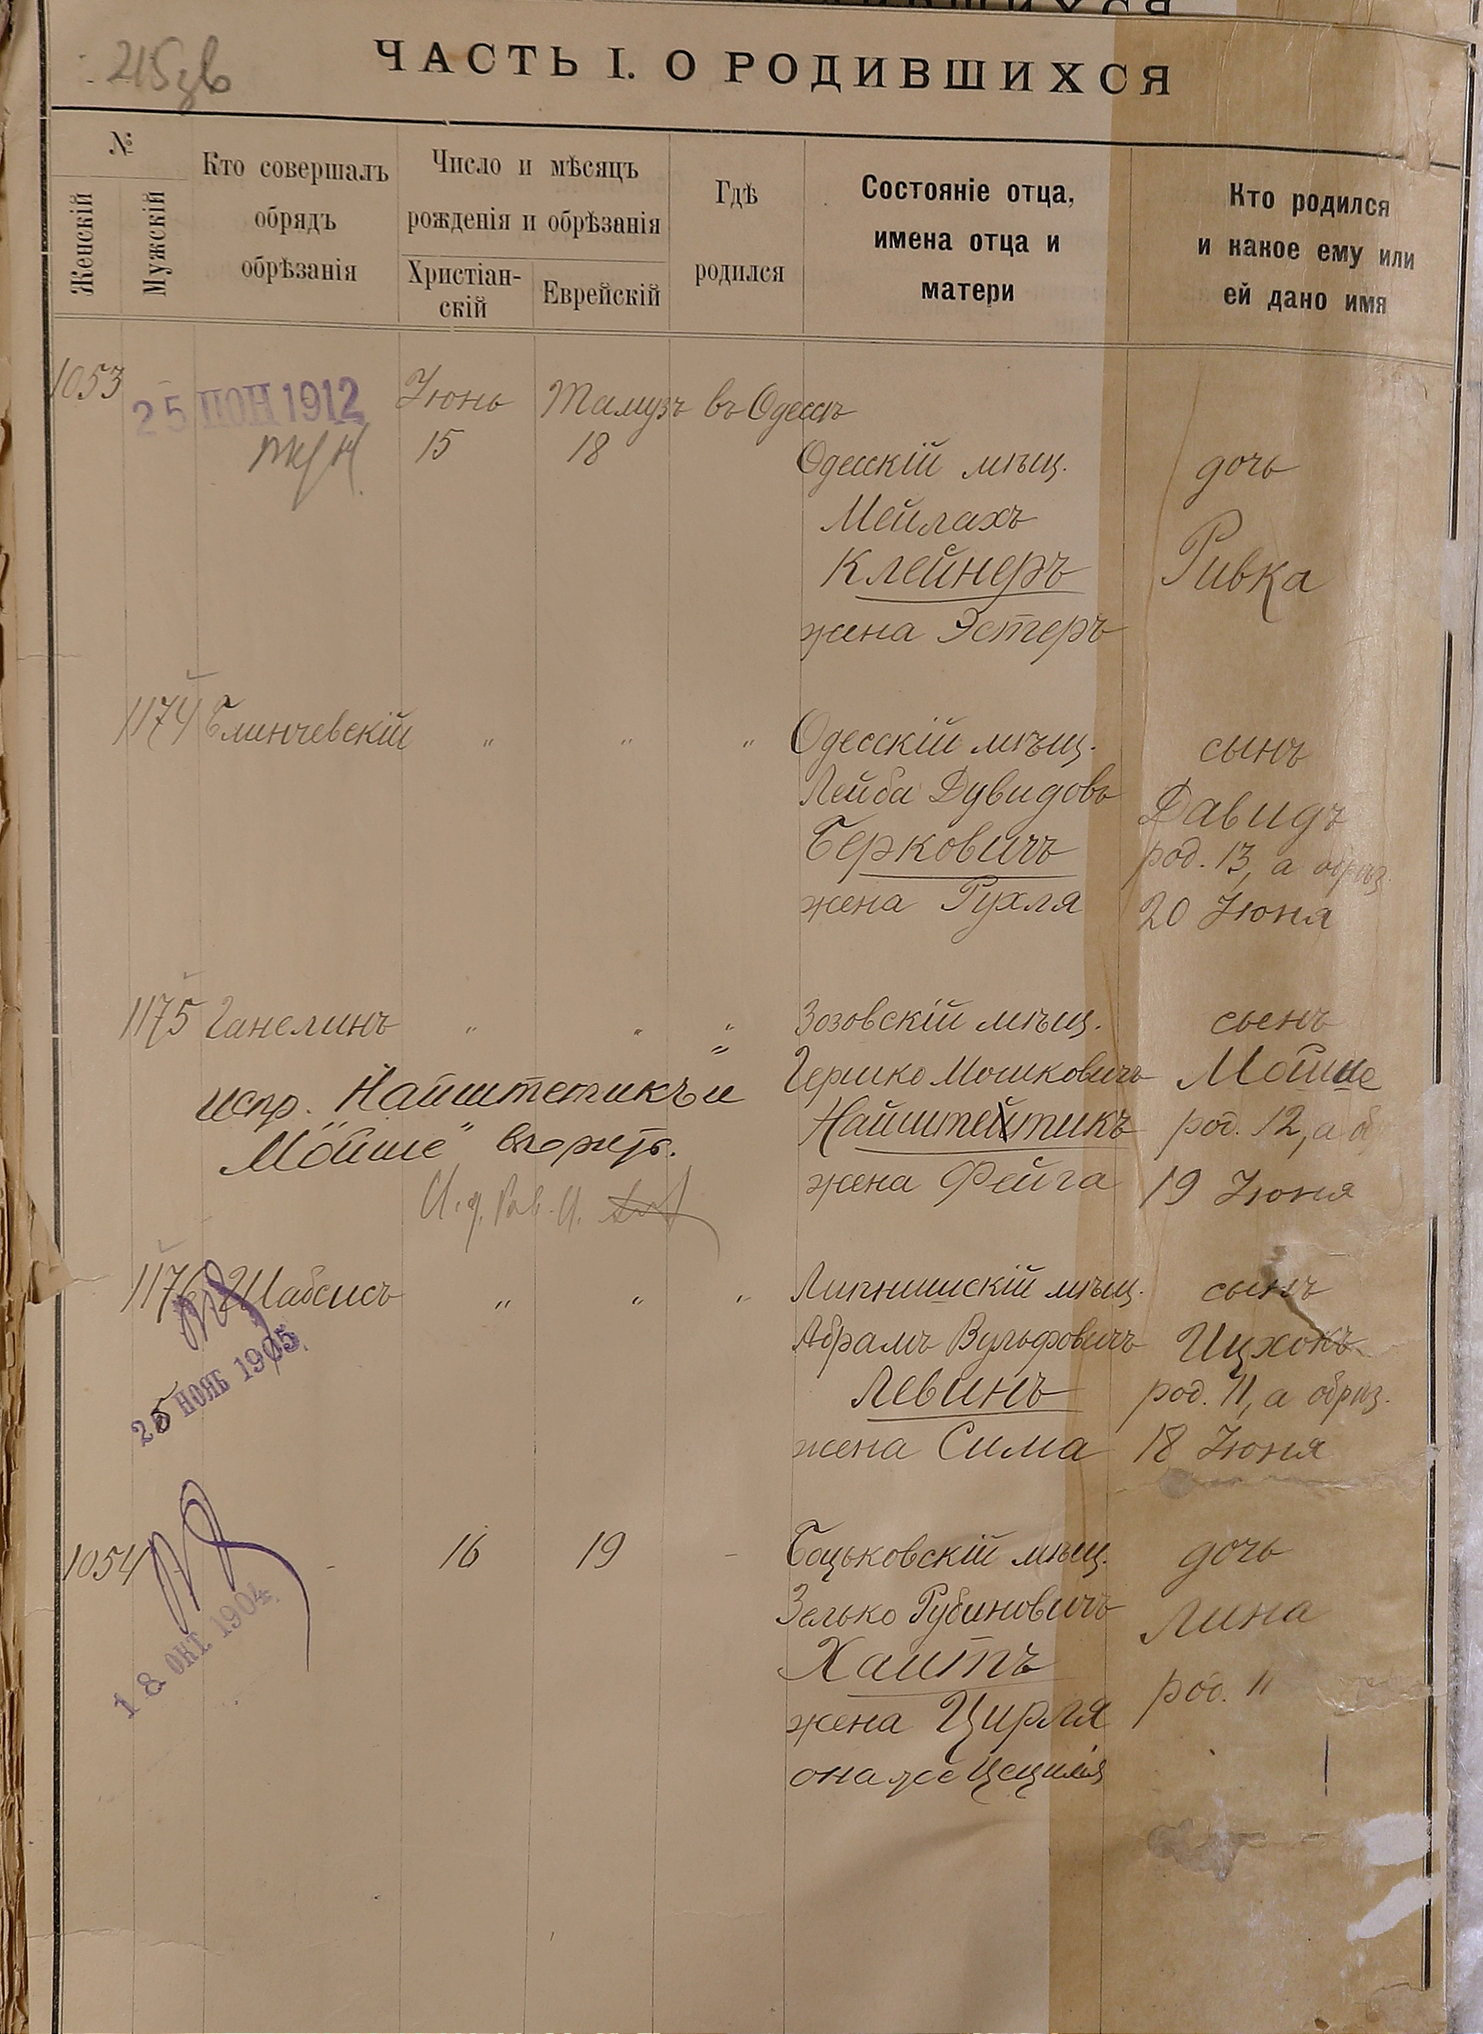 215
ЧАСТЬ I. О РОДИВШИХСЯ
№
Женскій
Мужскій
Кто совершалъ
обрядъ
обрѣзанія
Число и мѣсяцъ
рожденія и обрѣзанія
Христіан-
скій
Еврейскій
Гдѣ
родился
Состояніе отца,
имена отца и
матери
Кто родился
и какое ему или
ей дано имя
1053
25 1912
Іюнь Тамузъ въ Одессѣ
15 18
Одесскій мѣщ.
Мейлахъ
Клейнеръ
жена Эстеръ
дочь
Ривка
1174 Блинчевскій " " "
Одесскій мѣщ.
Лейба Дувидовъ
Берковичъ
жена Рухля
сынъ
Давидъ
род. 13, а обрѣз.
20 Іюня
1175 Ганелинъ " " "
Зозовскій мѣщ.
Гершко Мошковичъ
Найштетикъ
жена Фейга
сынъ
Мойше
род. 12, а об
19 Іюня
испр. "Найштетикъ и
Мойше"
И. д. Рав.
1176 Шабсисъ " " "
25 НОЯБ 1905
Липнишскій мѣщ.
Абрамъ Вульфовичъ
Левинъ
жена Сима
сынъ
Ицхокъ
род. 11, а обрѣз.
18 Іюня
1054 - 16 19 -
18 ОКТ. 1904
Боцьковскій мѣщ.
Зелько Рубиновичъ
Хаитъ
жена Цирля
она же Цецилія
дочь
Лина
род. 11